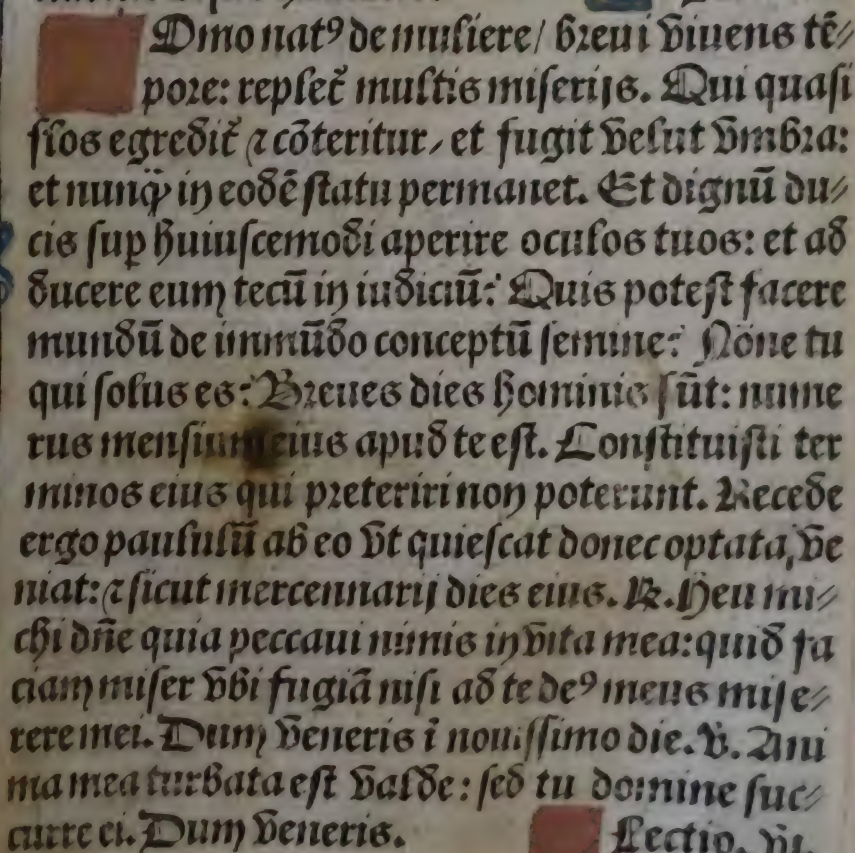 Omo natꝰ de muliere/ breui viuens tē⸗
pore: replet᷑ multis miserijs. Qui quasi
flos egredit᷑ ⁊ cōteritur, et fugit velut vmbra:
et nunꝙ̄ in eodē statu permanet. Et dignū du⸗
cis suꝑ huiuscemodi aperire oculos tuos: et ad
ducere eum tecū in iudiciū? Quis potest facere
mundū de immūdo conceptū semine? Nōne tu
qui solus es? Breues dies hominis sūt: nume
rus mensium eius apud te est. Constituisti ter
minos eius qui preteriri non poterunt. Recede
ergo paululū ab eo vt quiescat donec optata, ve
niat: ⁊ sicut mercennarij dies eius. ℟. Heu mi⸗
chi dn̄e quia peccaui nimis in vita mea: quid fa
ciam miser vbi fugiā nisi ad te deꝰ meus mise⸗
rere mei. Dum veneris ī nouissimo die. ℣. Ani
ma mea turbata est valde: sed tu domine suc⸗
curre ei. Dum veneris.
Lectio. vi.